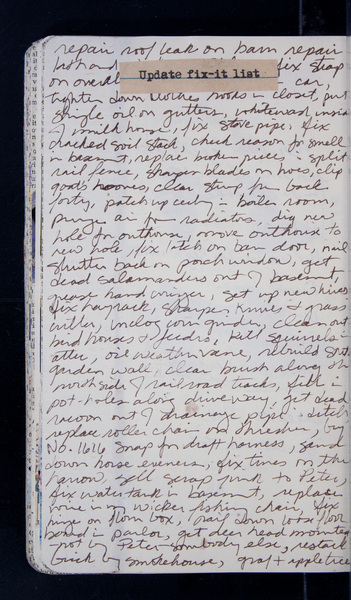 repair roof leak on barn repair
Update fix-it list
hot and fix strap
on overall car,
tighten down clothes hooks in closet, put
single oil on gutters, whitewash inside
of milk house, fix stove pipe, fix
cracked soil stack, check reason for smell
in basement, replace broken pieces in split
rail fence, sharpen blades on hoes, clip
goats hooves, clear strip for back
forty, patch up ceiling in boiler room,
purge air from radiators, dig new
hole for outhouse, move outhouse to
new hole fix latch on barn door, nail
shutter back on porch window, get
dead salamanders out of basement
grease hand wringer, set up new hives
fix hayrack, sharpen knives & grass
cutter, unclog corn grinder, clean out
bird houses & feeders, kill squirrels in
attic, oil weathervane, rebuild
garden wall, clear brush along the
north side of railroad tracks, fill in
pot-holes along driveway, get dead
racoon out of drainage pipe in ditch
replace roller chain on thresher, buy
No. 1616 snap for draft harness, sand
down horse eveners, fix tines on the
harrow, sell scrap junk to Peter,
fix water tank in basement, replace
in my wicker fishing chair, fix
hinge on flour box, nail down loose floor
board in parlor, get deer head mounted
not by Peter somebody else, restack
brick by smokehouse, graft apple tree